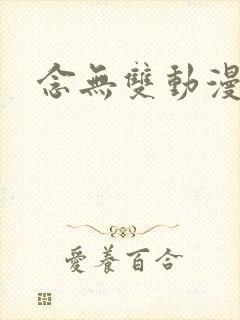 念無雙動漫
愛養百合